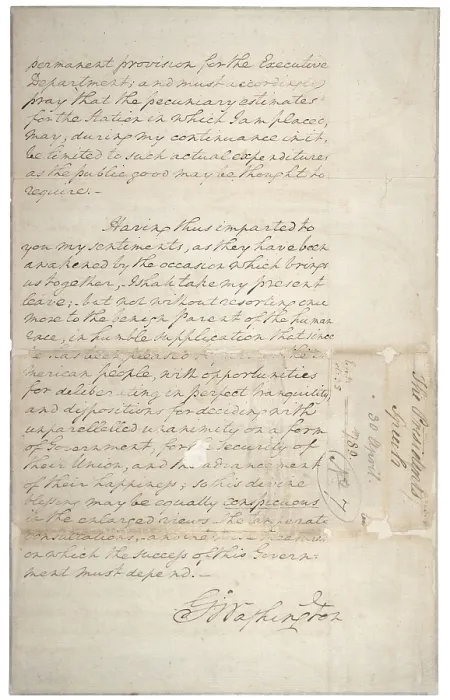 permanent provision for the Executive
Department; and must accordingly
pray that the pecuniary estimates
for the Station in which I am placed,
may, during my continuance in it,
be limited to such actual expenditures
as the public good may be thought to
require. -
Having thus imparted to
you my sentiments, as they have been
awakened by the occasion which brings
us together, I shall take my present
leave; but not without resorting once
more to the benign Parent of the human
race, in humble supplication that since
he has been pleased
American people, with opportunities
for deliberating in perfect tranquility,
and dispositions for deciding with
unparellelled unanimity on a form
of Government, for the security of
their Union, and the advancement
of their happiness; so his divine
blessing may be equally conspicuous
in the enlarged views, the temperate
consultations, and the
on which the success of this Govern-
ment must depend. -
G Washington
The Presidents
Speech
30 April.
1789